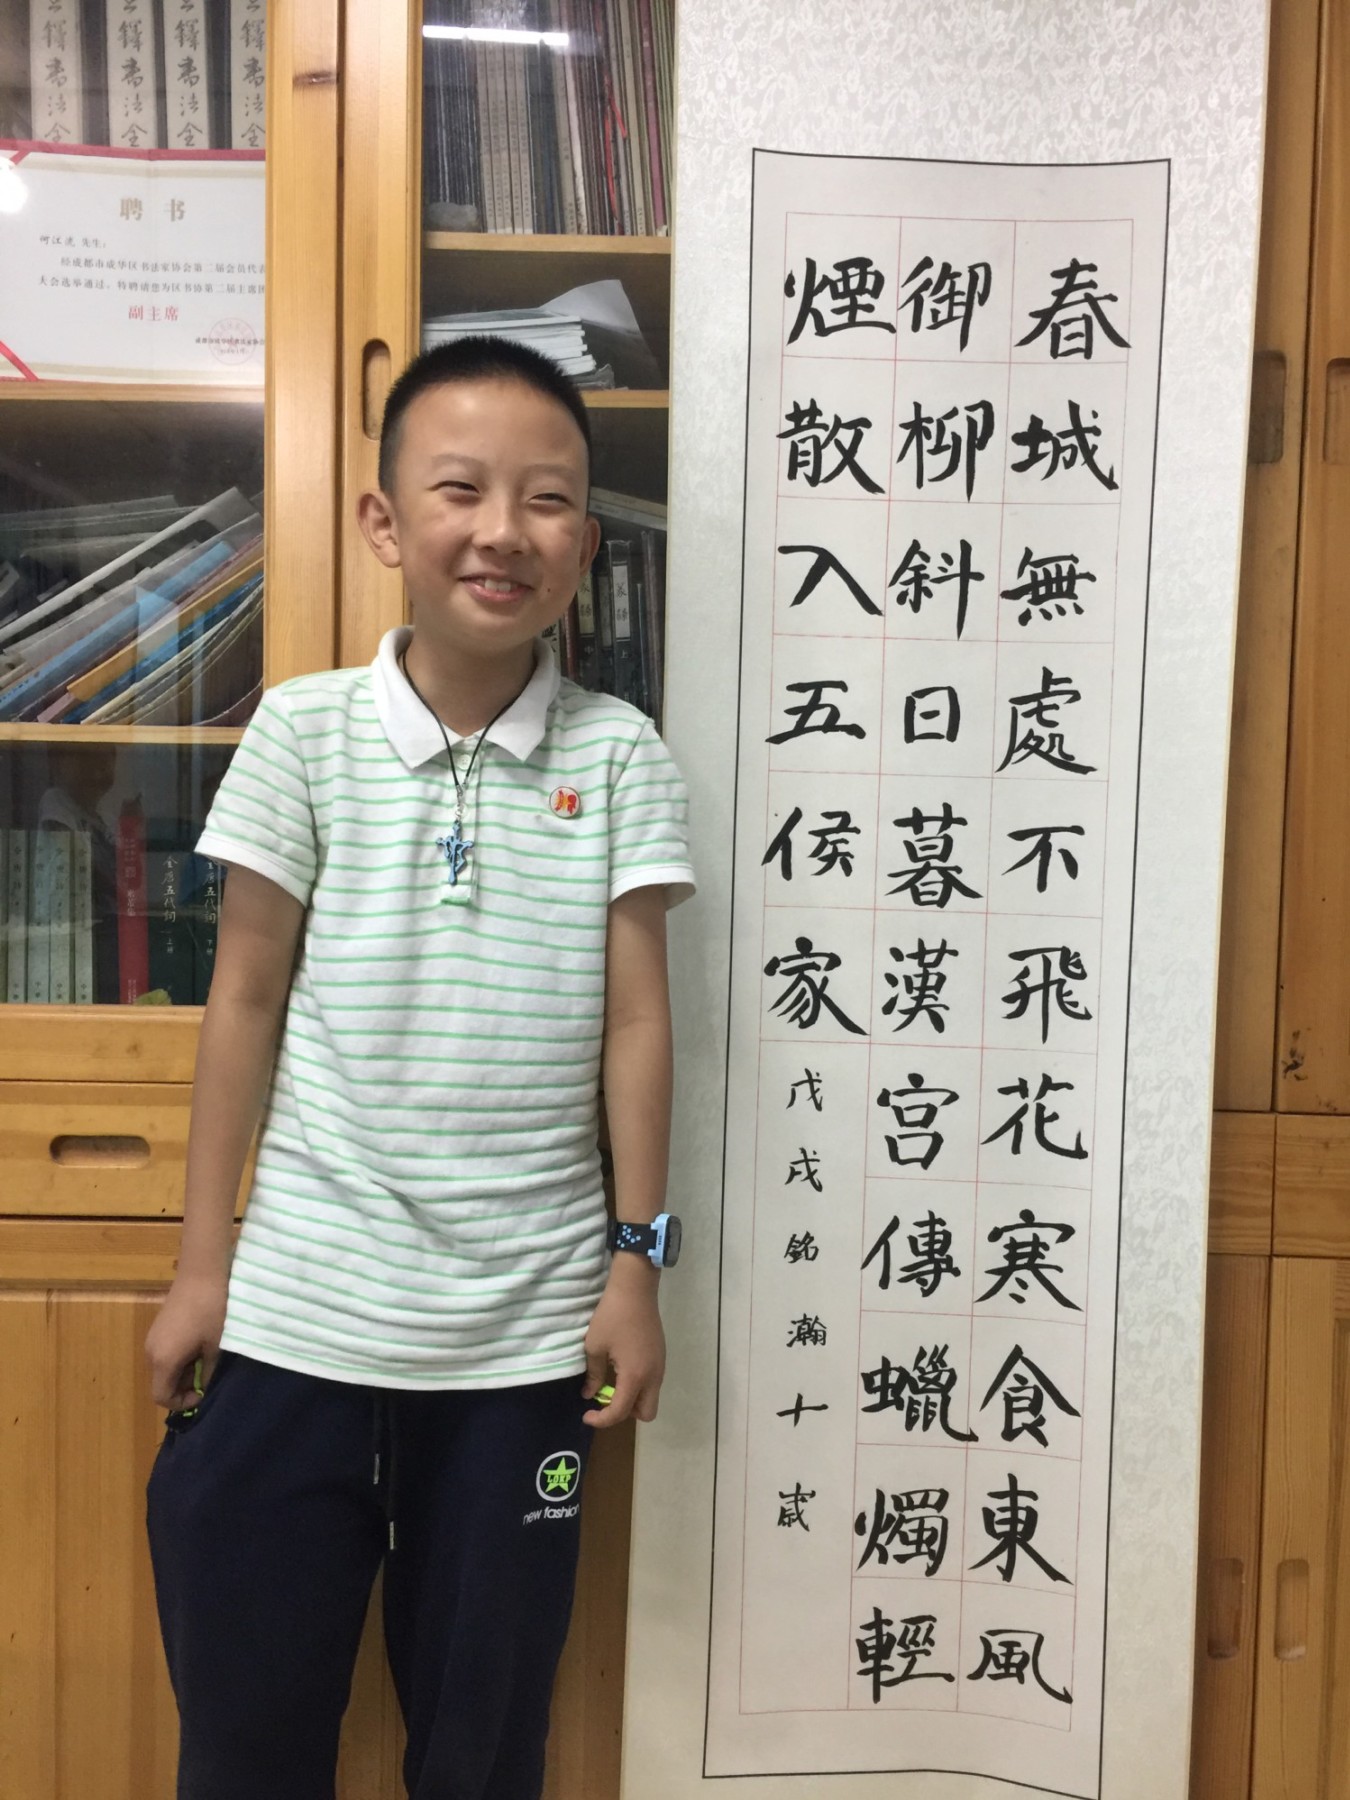 春城無處不飛花寒食東風
御柳斜日暮漢宮傳蠟燭輕
煙散入五侯家
戊戌銘瀚十歲
聘书
何江流 先生：
经成都市成华区书法家协会第二届会员代表
大会选举通过，特聘请您为区书协第二届主席团
副主席
书法全
书法全
书法全
书法全
全唐五代词 上册
全唐五代词 下册
中
上
LOKP
new fashion